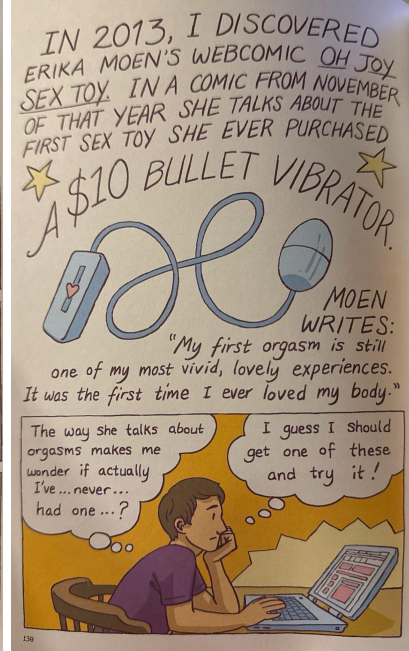 IN 2013, I DISCOVERED
ERIKA MOEN'S WEBCOMIC OH JOY
SEX TOY. IN A COMIC FROM NOVEMBER
OF THAT YEAR SHE TALKS ABOUT THE
FIRST SEX TOY SHE EVER PURCHASED
A $10 BULLET VIBRATOR.
MOEN
WRITES:
"My first orgasm is still
one of my most vivid, lovely experiences.
It was the first time I ever loved my body."
The way she talks about
orgasms makes me
wonder if actually
I've...never...
had one...?
I guess I should
get one of these
and try it!
138